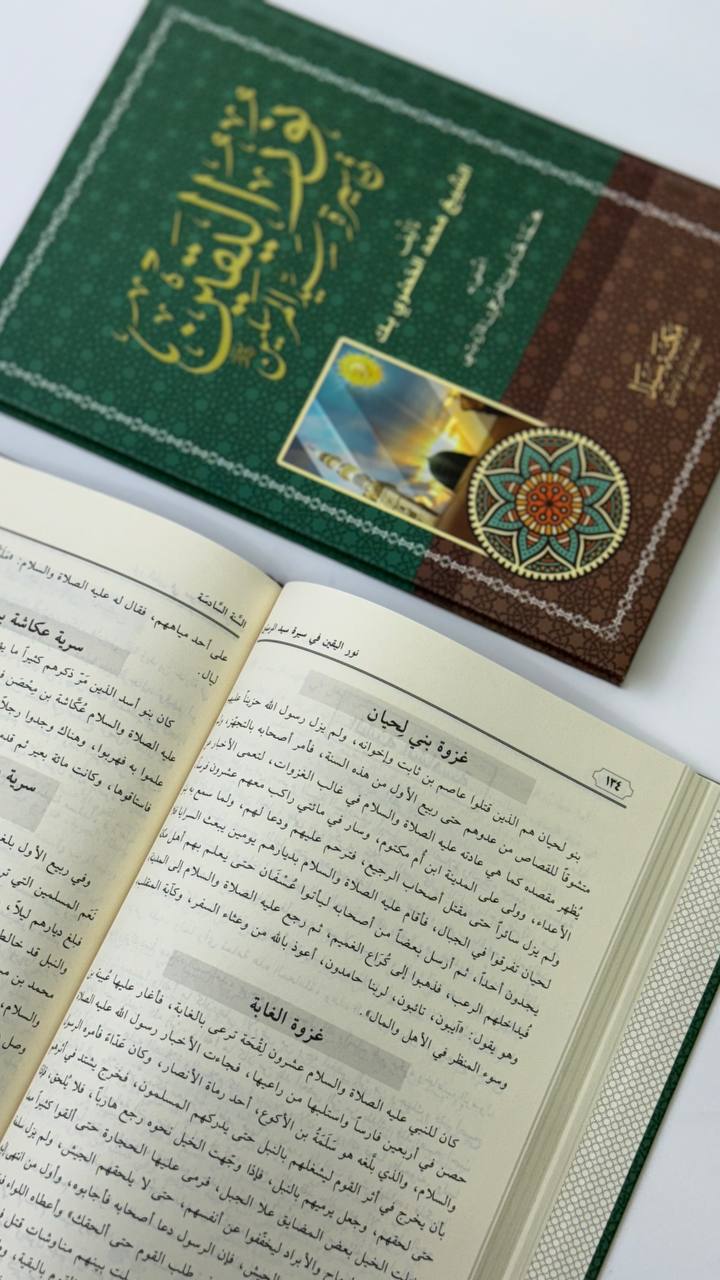 نور اليقين
في سيرة سيد المرسلين
تأليف
الشيخ محمد الخضري بك
السَّنة السَّادسَة
على أحد مياههم، فقال له عليه الصلاة والسلام:
ليال.
سرية عكاشة
كان بنو أسد الذين مَرّ ذكرهم كثيراً ما
عليه الصلاة والسلام عُكَّاشة بن مِحْصَن
علموا به فهربوا، وهناك وجدوا رجلاً
فاستاقوها، وكانت مائة بعير ثم
سرية
وفي ربيع الأول بلغه
نَعَم المسلمين التي
فبلغ ديارهم ليلاً،
والنبل قد خالط
محمد بن
والسلام،
وصل
نور اليقين في سيرة سيد
١٣٤
غزوة بني لِحيان
بنو لحيان هم الذين قتلوا عاصم بن ثابت وإخوانه، ولم يزل رسول الله حزيناً عليهم
متشوقاً للقصاص من عدوهم حتى ربيع الأول من هذه السنة، فأمر أصحابه بالتجهّز،
يُظهر مقصده كما هي عادته عليه الصلاة والسلام في غالب الغزوات، لتعمى الأخبار
الأعداء، وولى على المدينة ابن أم مكتوم، وسار في مائتي راكب معهم عشرون
ولم يزل سائراً حتى مقتل أصحاب الرجيع، فترحم عليهم ودعا لهم، ولما سمع به
لحيان تفرقوا في الجبال، فأقام عليه الصلاة والسلام بديارهم يومين يبعث السرايا
يجدون أحداً، ثم أرسل بعضاً من أصحابه ليأتوا عُسْفَان حتى يعلم بهم أهل
فيداخلهم الرعب، فذهبوا إلى كُرَاع الغميم، ثم رجع عليه الصلاة والسلام إلى المدينة
وهو يقول: «آيبون، تائبون، لربنا حامدون، أعوذ بالله من وعثاء السفر، وكآبة المنقلب
وسوء المنظر في الأهل والمال».
غزوة الغابة
كان للنبي عليه الصلاة والسلام عشرون لِقْحَة ترعى بالغابة، فأغار عليها عُيينة بن
حصن في أربعين فارساً واستلبها من راعيها، فجاءت الأخبار رسول الله عليه الصلاة
والسلام، والذي بلَّغه هو سَلَمَةُ بن الأكوع، أحد رماة الأنصار، وكان عَدّاءً فأمره الرسول
بأن يخرج في أثر القوم ليشغلهم بالنبل حتى يدركهم المسلمون، فخرج يشتد في أثرهم
حتى لحقهم، وجعل يرميهم بالنبل، فإذا وجَّهت الخيل نحوه رجع هارباً، فلا يُلحق،
الخيل بعض المضايق علا الجبل، فرمى عليها الحجارة حتى ألقوا كثيراً
والأبراد ليخففوا عن أنفسهم، حتى لا يلحقهم الجيش، ولم يزل
الجيش، فإن الرسول دعا أصحابه فأجابوه، وأول من انتهى
طلب القوم حتى ألحقك» وأعطاه اللواء
بينهم مناوشات قتل